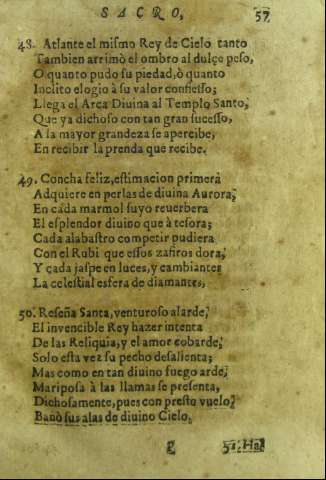 SACRO, 57
48. Atlante el mismo Rey de Cielo tanto
Tambien arrimò el ombro al dulçe peso,
O quanto pudo su piedad, ò quanto
Inclito elogio à su valor confiesso;
Llega el Arca Diuina al Templo Santo,
Que ya dichoso con tan gran sucesso,
A la mayor grandeza se apercibe,
En recibir la prenda que recibe.
49. Concha feliz, estimacion primera
Adquiere en perlas de diuina Aurora;
En cada marmol suyo reuerbera
El esplendor diuino que à tesora;
Cada alabastro competir pudiera
Con el Rubi que essos zafiros dora;
Y cada jaspe en luces, y cambiantes
La celestial esfera de diamantes,
50. Reseña Santa, venturoso alarde,
El inuencible Rey hazer intenta
De las Reliquia, y el amor cobarde,
Solo esta vez su pecho desalienta;
Mas como en tan diuino fuego arde,
Mariposa à las llamas se presenta,
Dichosamente, pues con presto vuelo,
Banò sus alas de diuino Cielo.
51. Ha